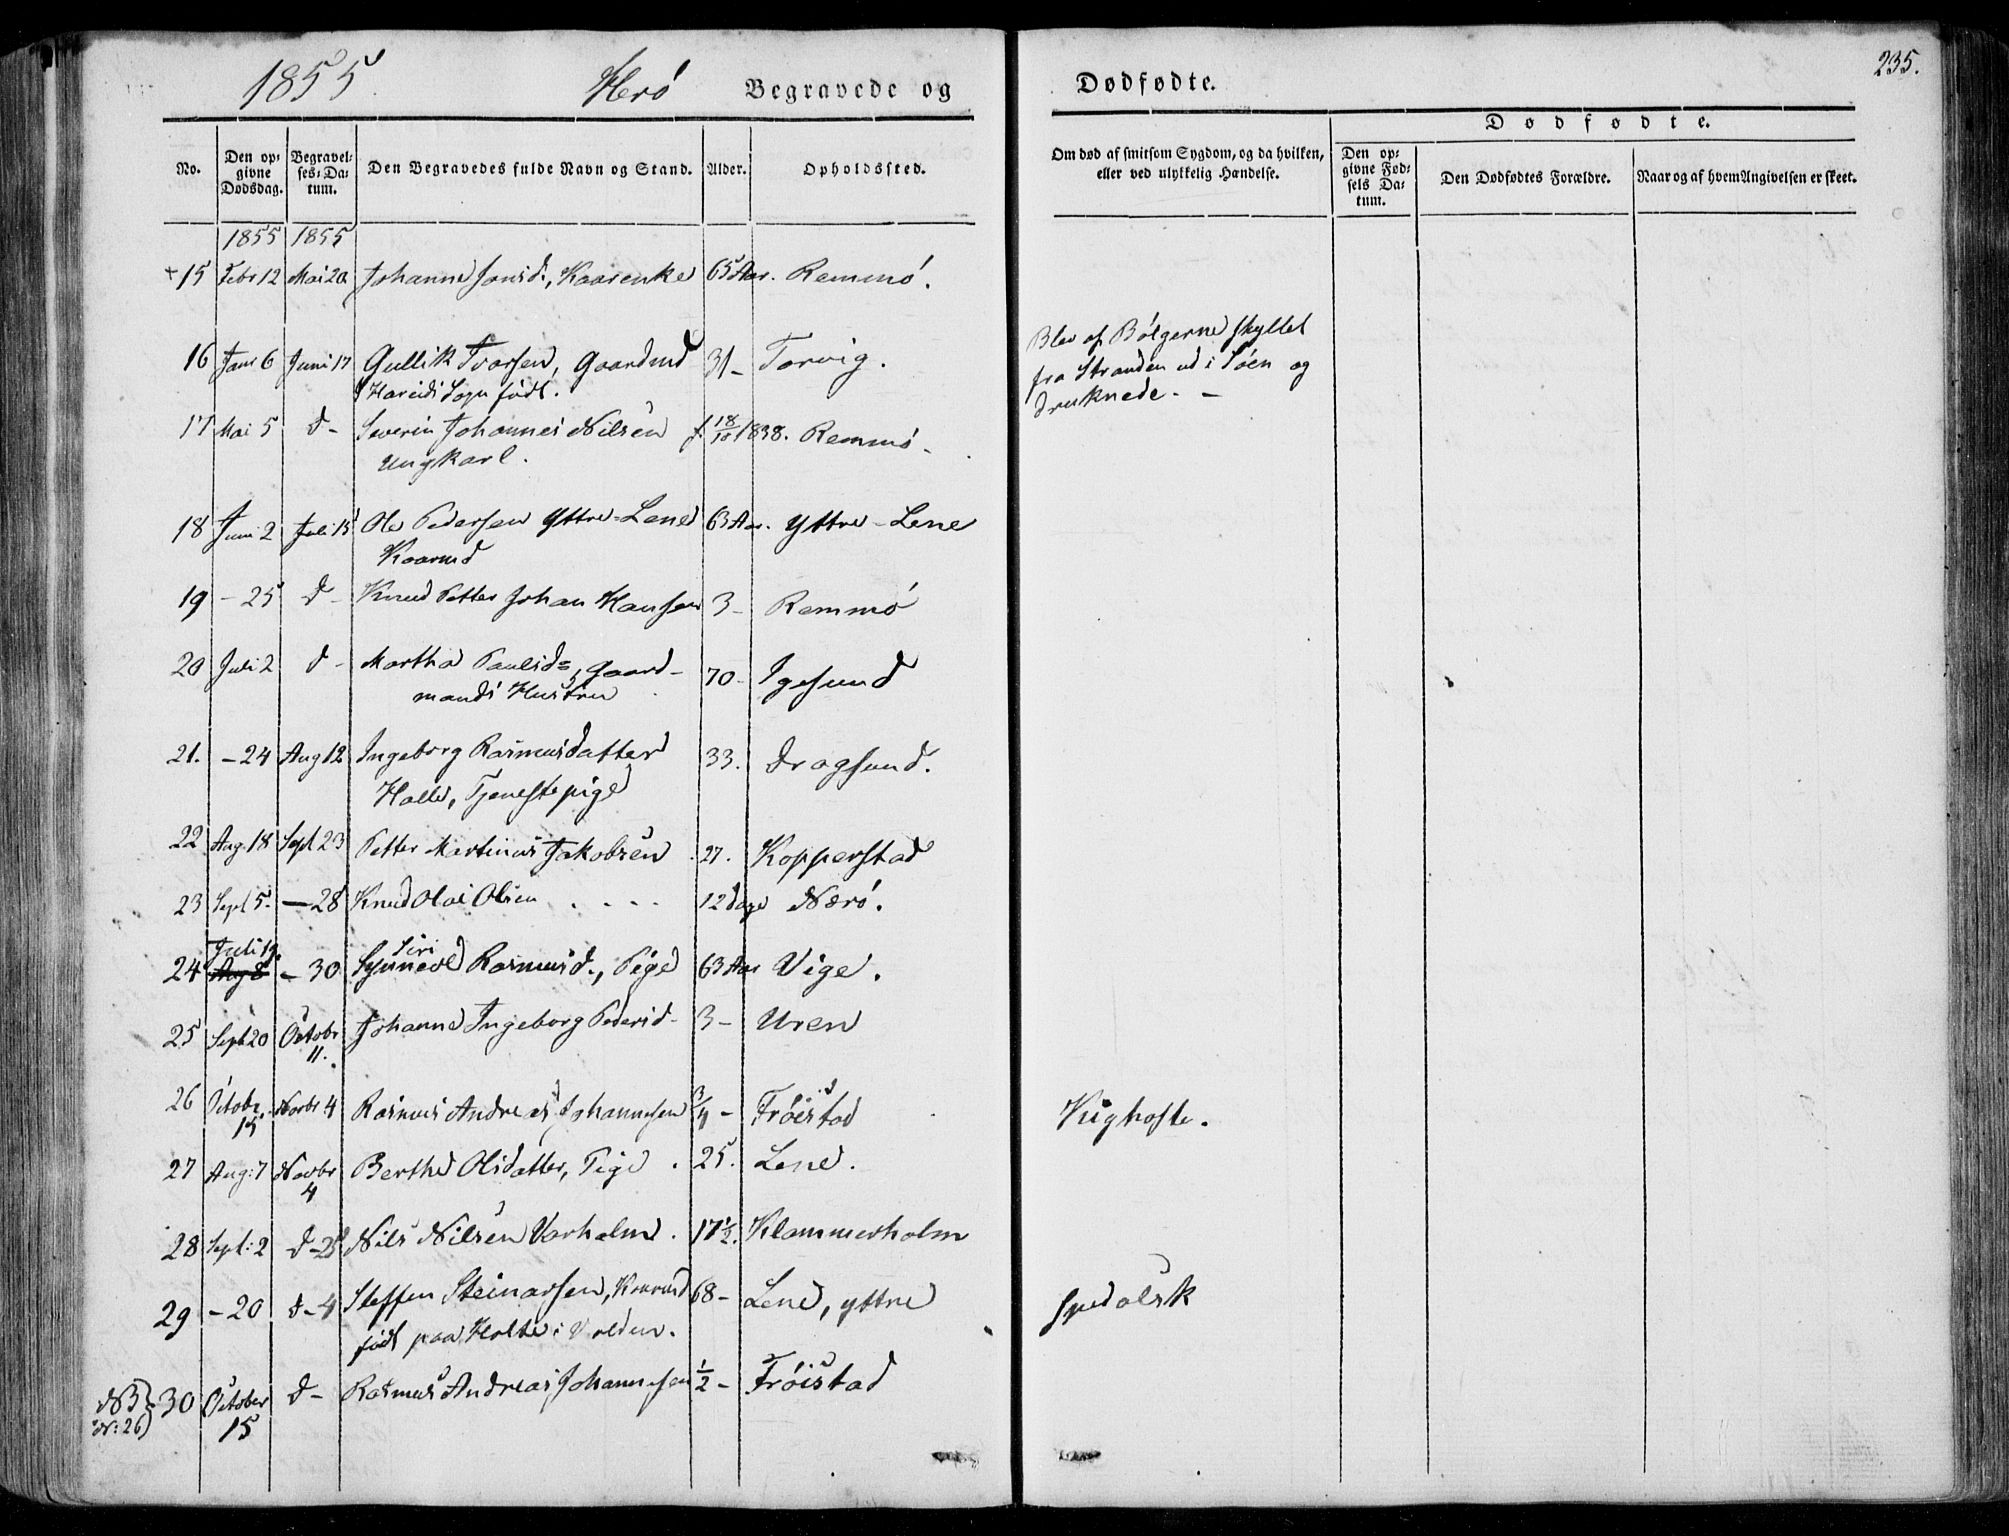 1855. Herø Begravede og Dødfødte. 235.
No. Den opgivne Dødsdag. Begravelses-Datum. Den Begravedes fulde Navn og Stand. Alder. Opholdssted. Om død af smitsom Sygdom, og da hvilken, eller ved ulykkelig Hændelse. Dødfødte. Den opgivne Fødsels Datum. Den Dødfødtes Forældre. Naar og af hvem Angivelsen er skeet.
1855 1855
+15 Febr 12 Mai 20 Johanne Jonsd., Kaarenke 65 Aar. Remmø.
16 Janr 6 Juni 17 Gullik Ivarsen, Gaardmd 31- Torvig. Blev af Bølgerne skyllet
Hareids Sogn født. fra Stranden ud i Søen og
druknede. -
17 Mai 5 d- Severin Johannes Nilsen f. 18/10 1838. Remmø.
Ungkarl.
18 Juni 2 Juli 15 Ole Pedersen Yttre-Lene 63 Aar. Yttre-Lene
Kaarmd
19 - 25 d- Knud Petter Johan Hansen 3- Remmø
20 Juli 2 d- Martha Paulsd., Gaard- 70- Igesund
mands Hustru
21. - 24 Aug 12 Ingeborg Rasmusdatter 33. Dragsund.
Halle, Tjenestepige
22 Aug. 18 Sept 23 Petter Martinus Jakobsen 27. Kopperstad
23 Sept 5. - 28 Knud Olai Olsen . . . . 12 dage Nærø.
Juli 19. Siri
24 Aug 8 - 30 Synneve Rasmusd., Pige 63 Aar Vige.
25 Sept 20 Octobr 11. Johanne Ingeborg Pedersd- 3- Uren
26 Octobr. 15 Novbr 4 Rasmus Andreas Johannesen 3/4 - Frøistad Kighoste.
27 Aug: 7 Novbr 4 Berthe Olsdatter, Pige . 25. Lene.
28 Sept: 2 d-25 Nils Nilsen Varholm . 17 1/2. Klammerholm
29 - 20 d-4 Steffen Steinarsen, Kaarmd 68- Lene, yttre spedalsk
født paa Holte i Volden.
NB Nr: 26) 30 October 15 d- Rasmus Andreas Johannesen 1/2 - Frøistad